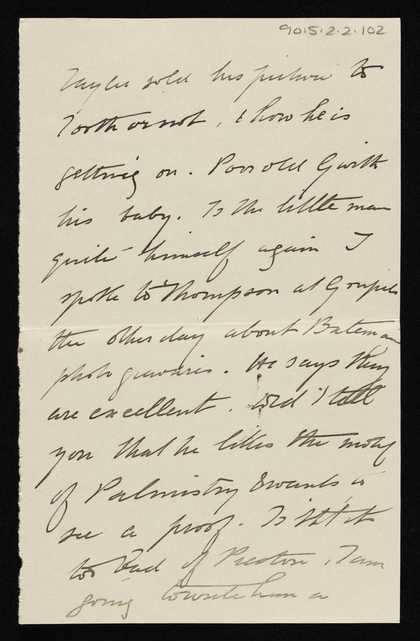 90.5.2.2.102
Taylor sold his picture to
Tooth or not, & how he is
getting on. Poor old G with
his baby. Is the little man
quite himself again I
spoke to Thompson at Goupils
the other day about Bateman
photogravures. He says they
are excellent. Did I tell
you that he likes the motif
of Palmistry & wants to
see a proof. Isn't it
too bad of Preston, I am
going to write him a